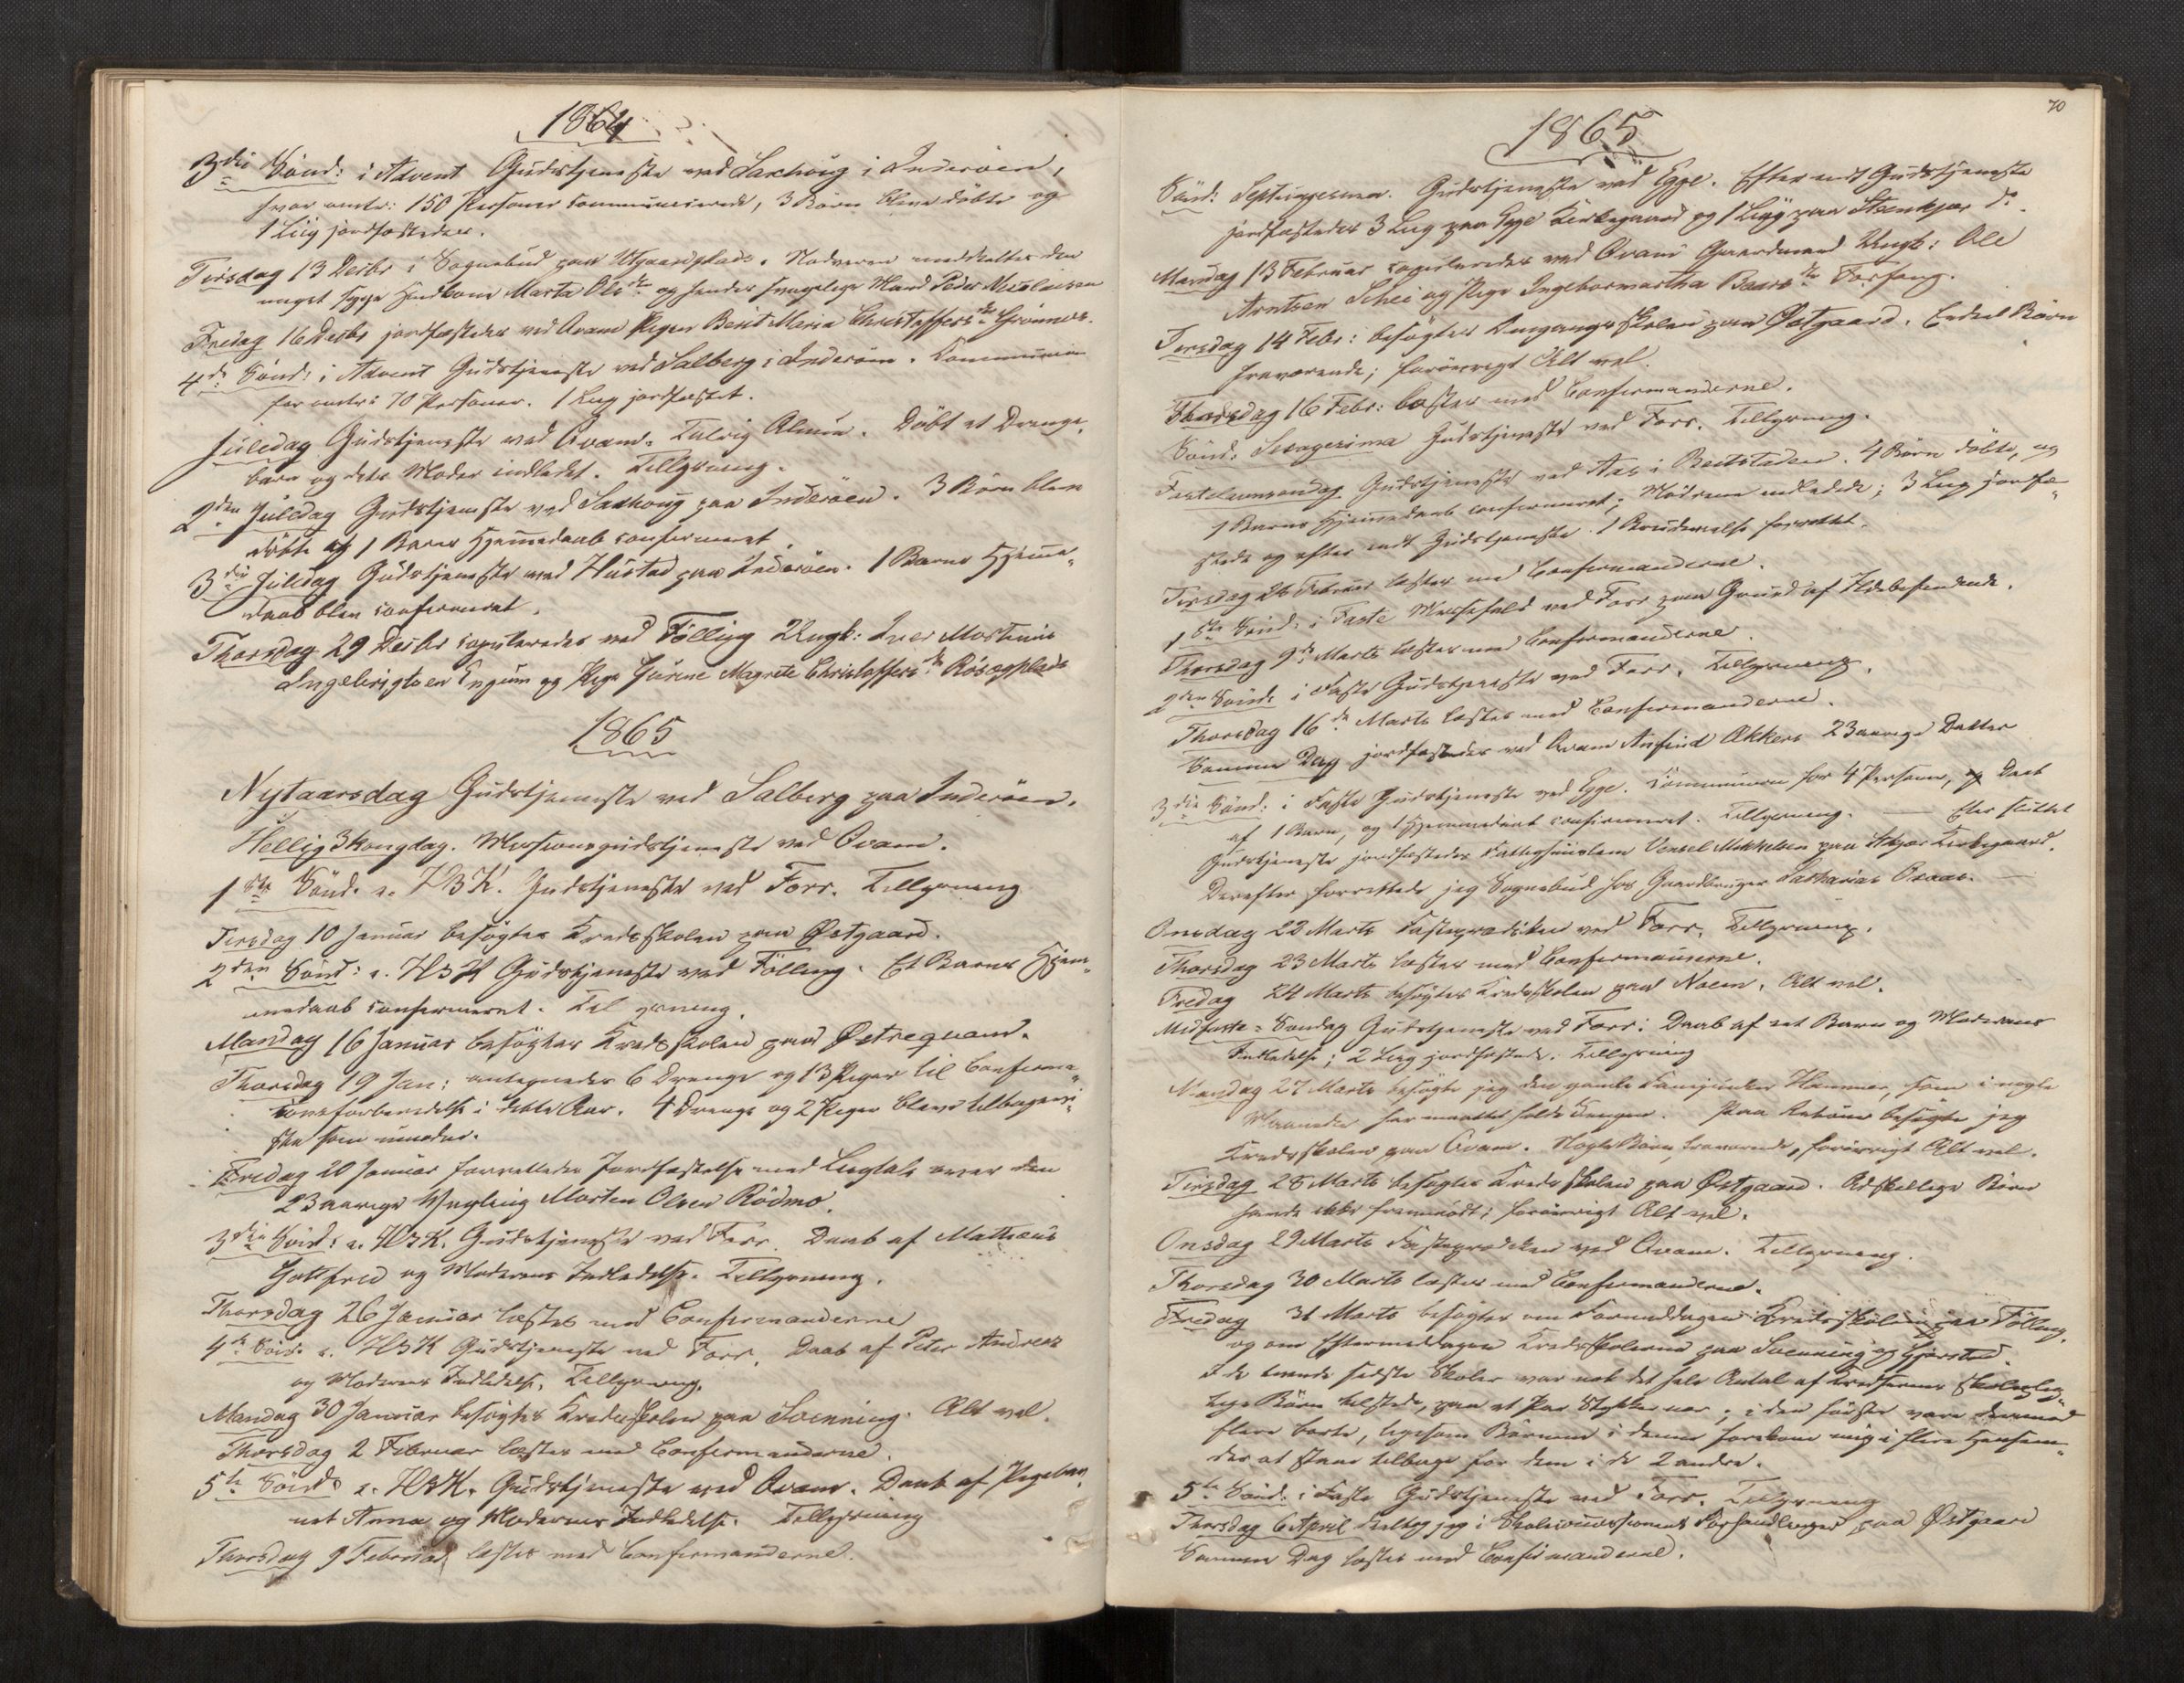 1864
3die Sönd: i Advent Gudstjeneste ved Saxhoug i Inderöen,
hvor omtr: 150 Personer communicerede, 3 Börn bleve döbte og
1 Liig jordfæstedes.
Tirsdag 13 Decbr i Sognebud paa Utgaardplads. Nadveren meddeltes den
meget syge Huuskone Marta Olsdtr og hendes svagelige Mand Peder Nicolaisen
Fredag 16 Decbr jordfæstedes ved Qvam Pigen Berit Maria Christoffersdtr Grönnes.
4de Sönd: i Advent Gudstjeneste ved Salberg i Inderöen. Communion
for omtr: 70 Personer. 1 Liig jordfæstet.
Juledag Gudstjeneste ved Qvam. Talrig Almue. Döbt et Drenge-
barn og dets Moder indledet. Tellgrung.
2den Juledag Gudstjeneste ved Saxhoug paa Inderöen. 3 Börn bleve
döbte og 1 Barns Hjemmedaab confirmeret.
3die Juledag Gudstjeneste ved Hustad paa Inderöen. 1 Barns Hjemme-
daab blev confirmeret.
Thorsdag 29 Decbr copuleredes ved Fölling Ungk: Iver Mostenius
Ingebrigtsen Engum og Pige Jürine Magrete Christoffersdtr Rösegplads
1865
Nytaarsdag Gudstjeneste ved Salberg paa Inderöen.
Hellig 3 Kongdag. Missionsgudstjeneste ved Qvam.
1ste Sönd. e. H3K. Gudstjeneste ved Forr.
Tirsdag 10 Januar besögtes Kredsskolen paa Östgaard.
2den Sönd: e. H3K Gudstjeneste ved Fölling. Et Barns Hjem-
medaab confirmeret.
Mandag 16 Januar besögtes Kredsskolen paa Östrequam.
Thorsdag 19 Jan: antegnedes 6 Drenge og 13 Piger til Confirma-
tionsforberedelse i dette Aar. 4 Drenge og 2 Piger bleve tilbagevi-
ste som umodne.
Fredag 20 Januar forrettedes Jordfæstelse med Liigtale over den
23aarige Yngling Morten Olsen Rödmo.
3die Sönd: e. H3K. Gudstjeneste ved Forr. Daab af Mathæus
Gottfred og Moderens Indledelse.
Thorsdag 26 Januar læstes med Confirmanderne
4de Sönd. e. H3K Gudstjeneste ved Forr. Daab af Peter Andreas
og Moderens Indledelse.
Mandag 30 Januar besögtes Kredsskolen paa Soenning. Alt vel.
Thorsdag 2 Februar læstes med Confirmanderne.
5te Sönd: e. H3K. Gudstjeneste ved Qvam. Daab af Pigebar-
net Anna og Moderens Indledelse.
Thorsdag 9 Februar læstes med Confirmanderne.
70
1865
Sönd: Septuagesima. Gudstjeneste ved Egge. Efter endt Gudstjeneste
jordfæstedes 3 Liig paa Egge Kirkegaard og 1 Liig paa Steenkjær do.
Mandag 13 Februar copuleredes ved Qvam Gaardmand Ungk: Ole
Arntsen Schei og Pige Ingebormartha Baarsdtr Forfang.
Tirsdag 14 Febr: besögtes Omgangsskolen paa Östgaard. Endeel Börn
fraværende; forövrigt Alt vel.
Thorsdag 16 Febr: læstes med Confirmanderne.
Sönd: Sexagesima Gudstjeneste ved Forr.
Fastelavnsöndag Gudstjeneste ved Aas i Beitstaden. 4 Börn döbte, og
1 Barns Hjemmedaab confirmeret; Mödrene indledede; 3 Liig jordfæ-
stede og efter endt Gudstjeneste 1 Brudevielse forrettet.
Tirsdag 28 Februar læstes med Confirmanderne.
1ste Sönd: i Faste Messefald ved Forr paa Grund af Ildebefindende.
Thorsdag 9de Marts læstes med Confirmanderne.
2den Sönd: i Faste Gudstjeneste ved Forr.
Thorsdag 16de Marts læstes med Confirmanderne.
Samme Dag jordfæstedes ved Qvam Anfind Akkers 23aarige Datter
3die Sönd: i Faste Gudstjeneste ved Egge. Communion for 4 Personer, og Daab
af 1 Barn, og 1 Hjemmedaab confirmeret. Efter sluttet
Gudstjeneste jordfæstedes Fattighuuslem Vensel Mikkelsen paa Stkjær Kirkegaard.
Derefter forrettede jeg Sognebud hos Gaardbruger Sacharias Oxaas.
Onsdag 22 Marts Fasteprædiken ved Forr.
Thorsdag 23 Marts læstes med Confirmanderne.
Fredag 24 Marts besögtes Kredsskolen paa Noem. Alt vel.
Midfaste-Sondag Gudstjeneste ved Forr: Daab af eet Barn og Moderens
Indledelse; 2 Liig jordfæstede.
Mandag 27 Marts besögte jeg den gamle Hammer, som i nogle
Maaneder har maattet holde Sengen. Paa Returen besögte jeg
Kredsskolen paa Qvam. Nogle Börn fraværende, forövrigt Alt vel.
Tirsdag 28 Marts besögtes Kredsskolen paa Östgaard. Adskillige Börn
havde ikke fremmödt; forövrigt Alt vel.
Onsdag 29 Marts Fasteprædiken ved Qvam.
Thorsdag 30 Marts læstes med Confirmanderne.
Fredag 31 Marts besögtes om Formiddagen Kredsskolen paa Fölling,
og om Eftermiddagen Kredsskolerne paa Soenning og Gjörstad.
I de tvende sidste Skoler var nok det hele Antal af Kredsenes skoleplig-
tige Börn tilstede, paa et Par Stykker nær; i den förste vare derimod
flere borte, ligesom Börnene i denne forekom mig i flere Henseen-
der at staae tilbage for dem i de 2 andre.
5te Sönd: i Faste Gudstjeneste ved Forr.
Thorsdag 6 April deeltog jeg i Skolecommissionens Forhandlinger paa Östgaard
Samme Dag læstes med Confirmanderne.